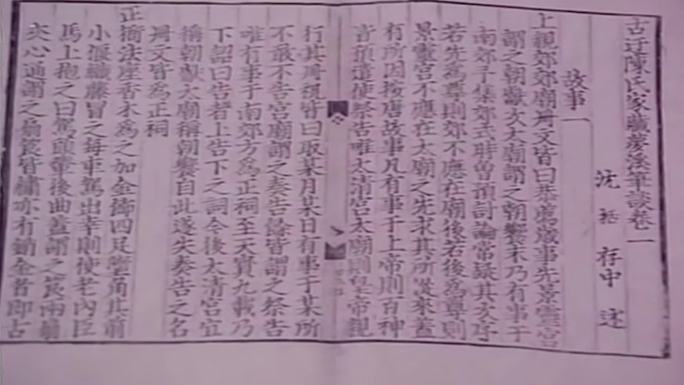 古迂陳氏家藏夢溪筆談卷一
沈括存中述
故事一
上親郊郊廟冊文皆曰恭薦歲事先景靈宮
謂之朝獻次太廟謂之朝饗末乃有事于
南郊予集郊式時曽預討論常疑其次序
若先為尊則郊不應在廟後若後為尊則
景靈宮不應在太廟之先求其所從來蓋
有所因按唐故事凡有事于上帝則百神
皆預遣使祭告唯太清宮太廟則皇帝親
行其冊祝皆曰取某月某日有事于某所
不敢不告宮廟謂之奏告餘皆謂之祭告
唯有事于南郊方為正祠至天寶九載乃
下詔曰告者上告下之詞今後太清宮宜
稱朝獻太廟稱朝饗自此遂失奏告之名
冊文皆為正祠
正衙法座香木為之加金飾四足墮角其前
小偃織藤冒之每車駕出幸則使老內臣
馬上抱之曰駕頭輦後曲蓋謂之筤兩扇
夾心通謂之扇筤皆繡亦有銷金者即古